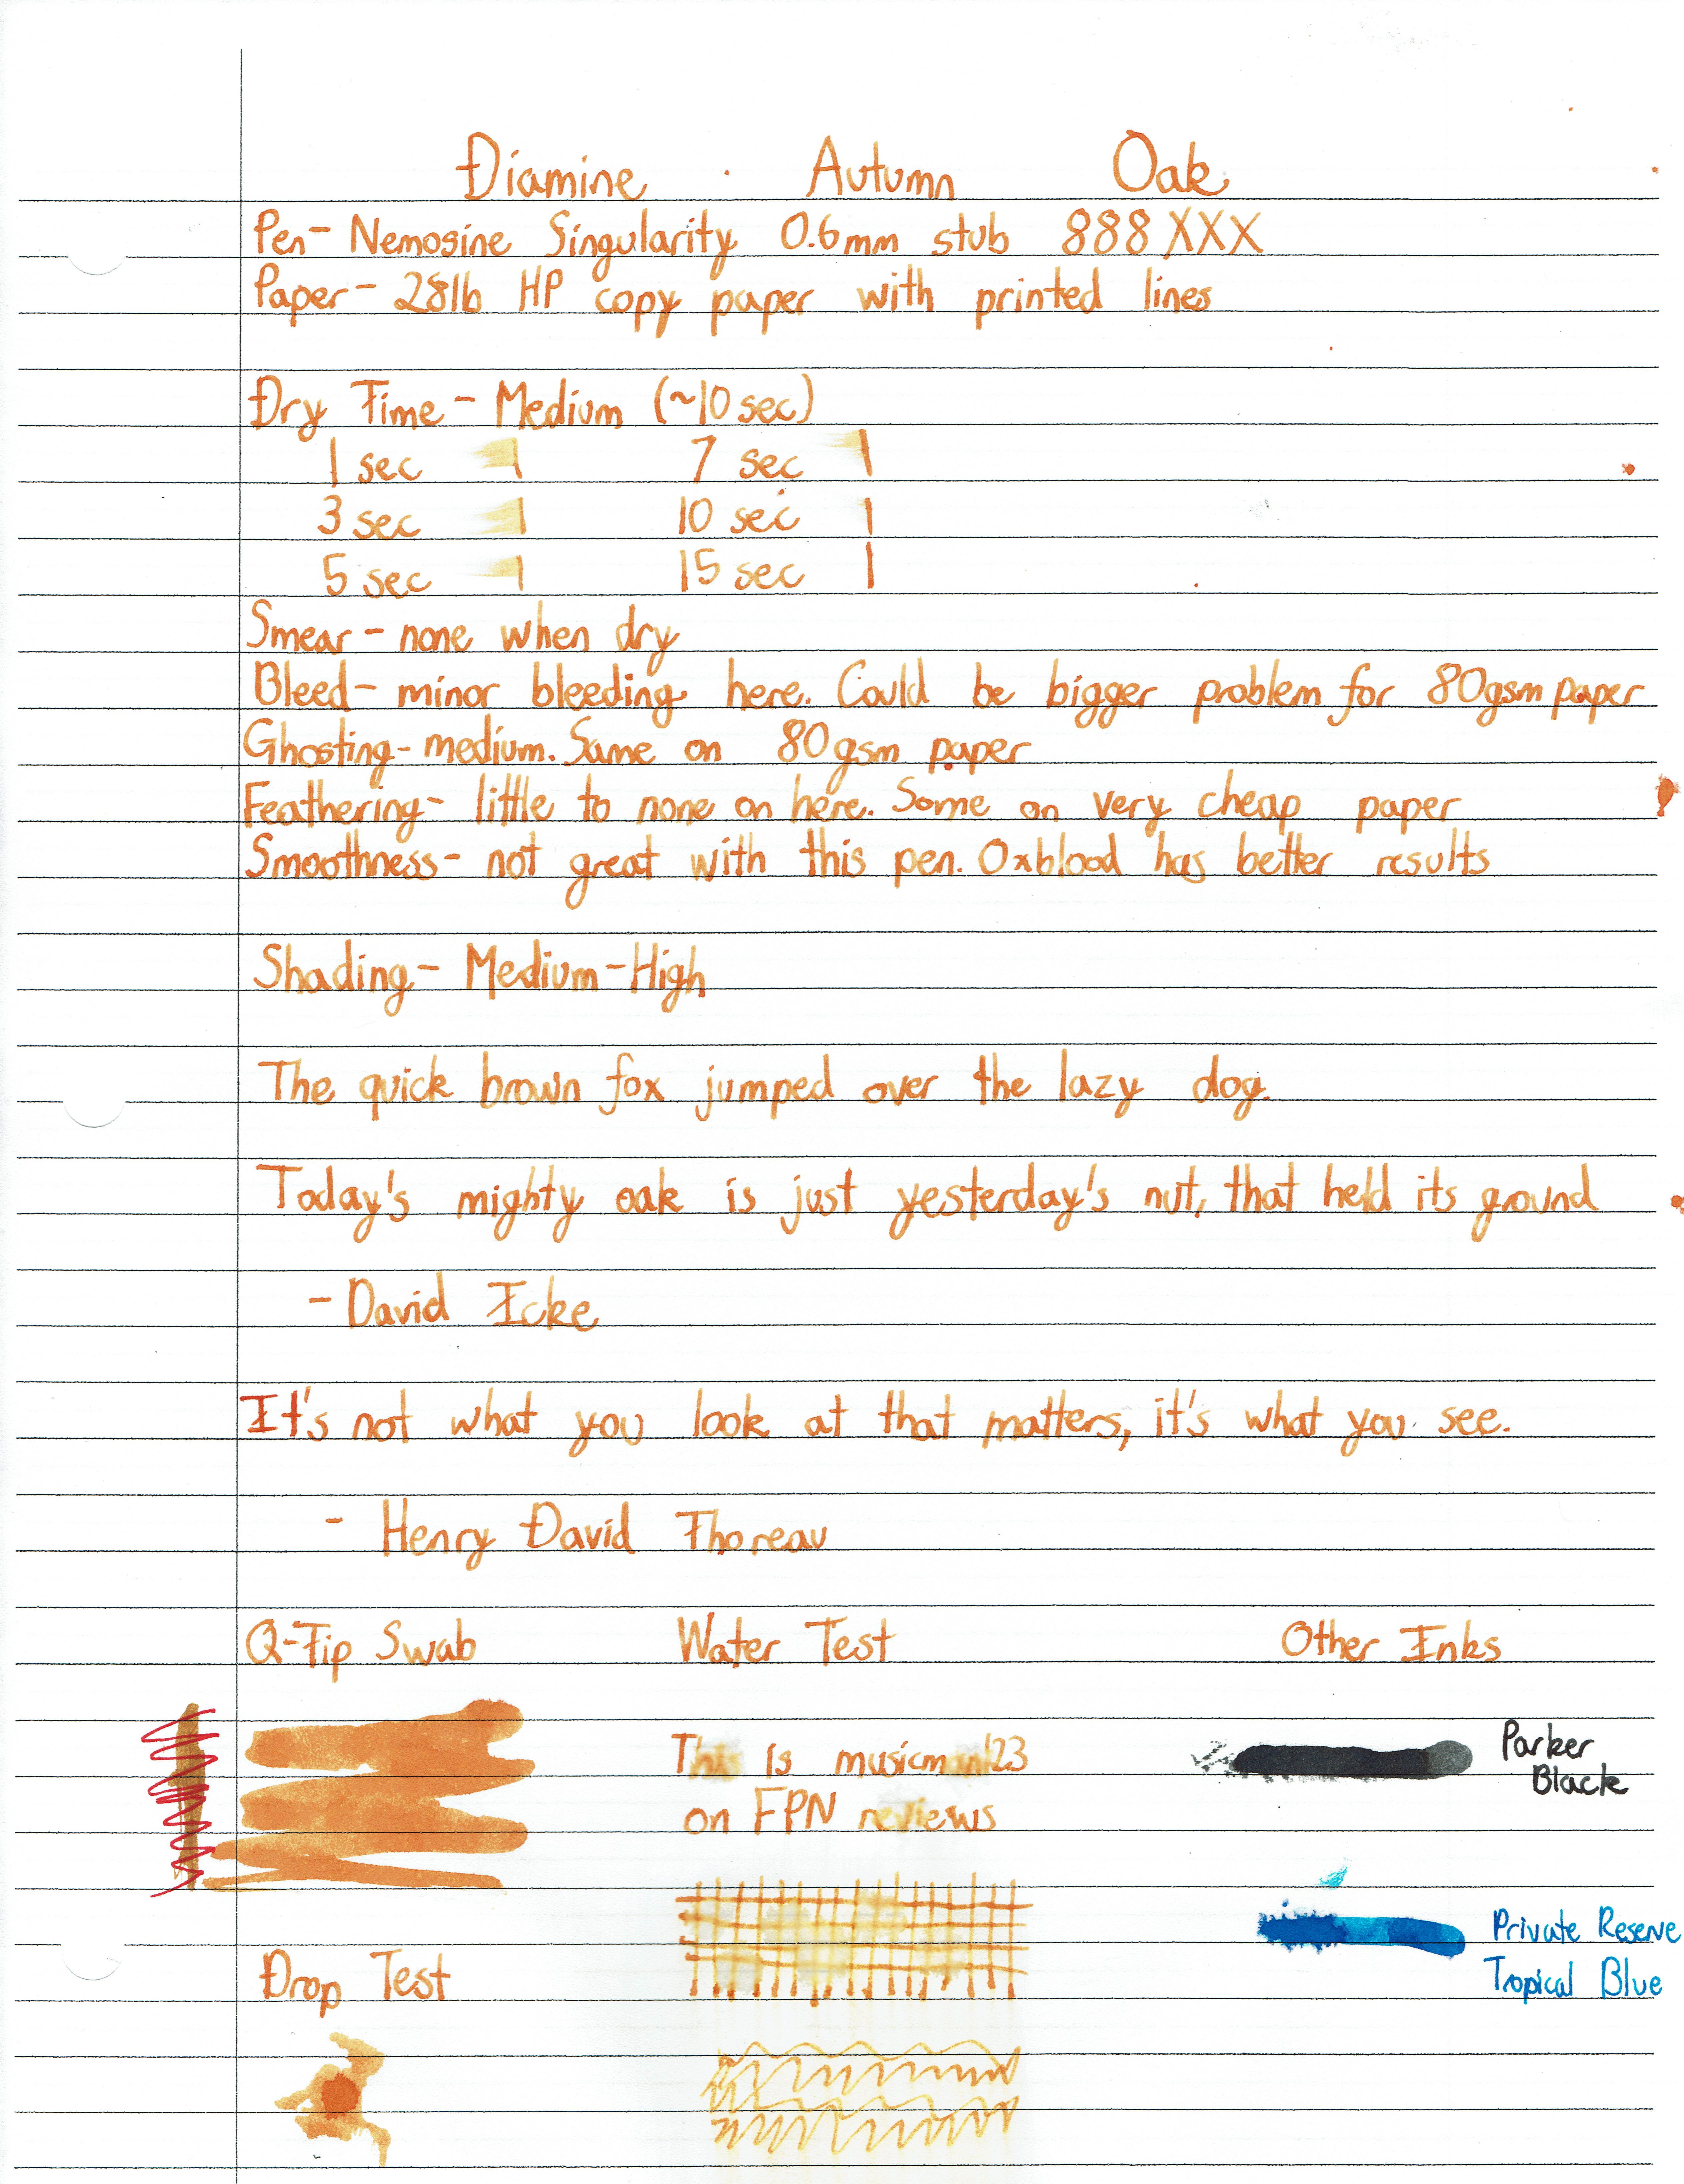 Diamine · Autumn Oak
Pen- Nemosine Singularity 0.6mm stub 888XXX
Paper- 28lb HP copy paper with printed lines
Dry Time - Medium (~10 sec)
1 sec 7 sec
3 sec 10 sec
5 sec 15 sec
Smear - none when dry
Bleed- minor bleeding here. Could be bigger problem for 80gsm paper
Ghosting- medium. Same on 80gsm paper
Feathering- little to none on here. Some on very cheap paper
Smoothness- not great with this pen. Oxblood has better results
Shading- Medium-High
The quick brown fox jumped over the lazy dog.
Today's mighty oak is just yesterday's nut, that held its ground
- David Icke
It's not what you look at that matters, it's what you see.
- Henry David Thoreau
Q-Tip Swab Water Test Other Inks
This is musicman123
on FPN reviews
Parker
Black
Private Reserve
Tropical Blue
Drop Test